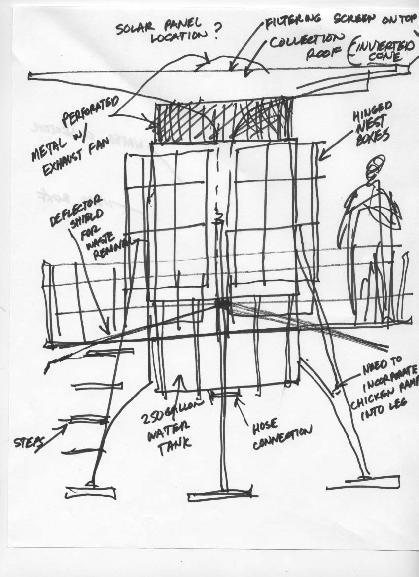 SOLAR PANEL
LOCATION ?
FILTERING SCREEN ON TOP
COLLECTION
ROOF
(INVERTED
CONE
PERFORATED
METAL W/
EXHAUST FAN
HINGED
NEST
BOXES
DEFLECTOR
SHIELD
FOR
WASTE
REMOVAL
STEPS
250 GALLON
WATER
TANK
HOSE
CONNECTION
NEED TO
INCORPORATE
CHICKEN RAMP
INTO LEG